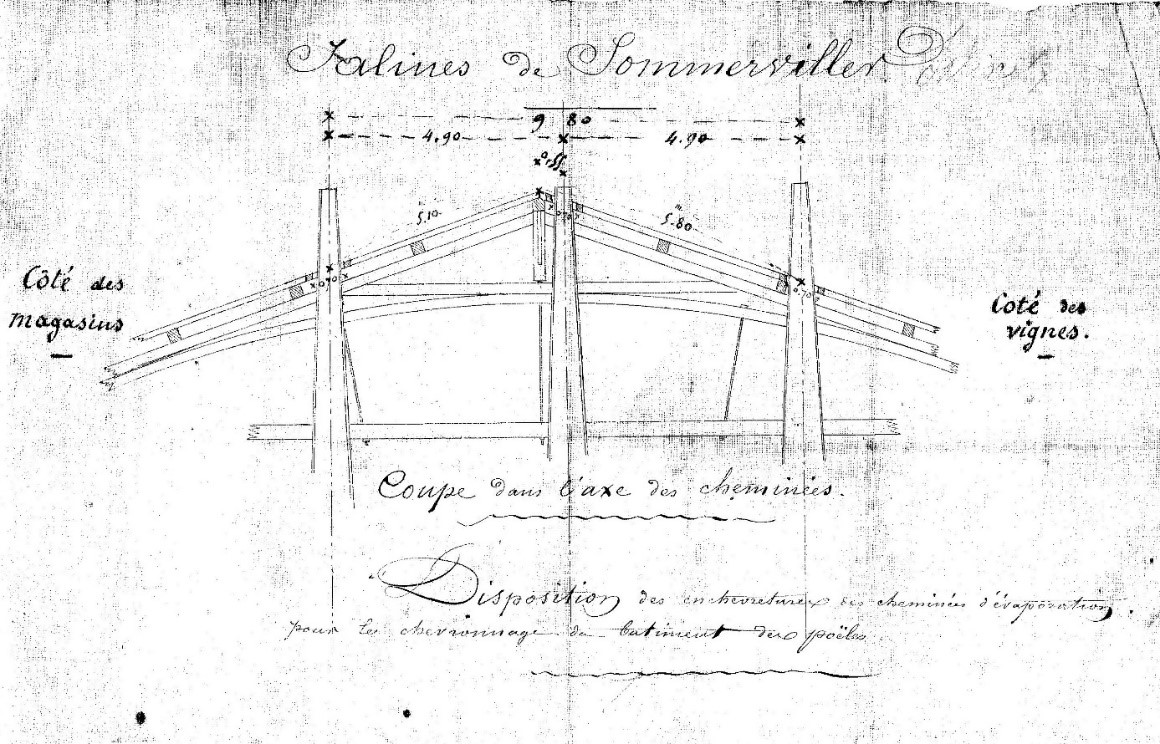 Salines de Sommerviller
9 80
4.90 4.90
0,55
5.10 5.80
0.70
0.70 0.70
Côté des
magasins
Coté des
vignes.
Coupe dans l'axe des cheminées.
Disposition des enchevetures des cheminées d'évaporation
pour le chevronnage du batiment des poëles